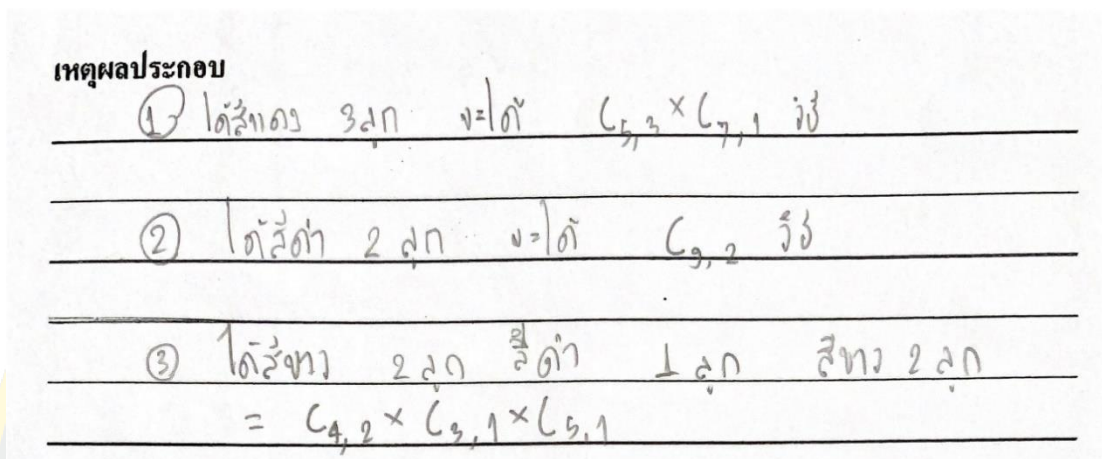 เหตุผลประกอบ
① ได้สีแดง 3 ลูก จะได้ C5,3 × C7,1 วิธี
② ได้สีดำ 2 ลูก จะได้ C9,2 วิธี
③ ได้สีขาว 2 ลูก สีดำ 1 ลูก สีขาว 2 ลูก
= C4,2 × C3,1 × C5,1